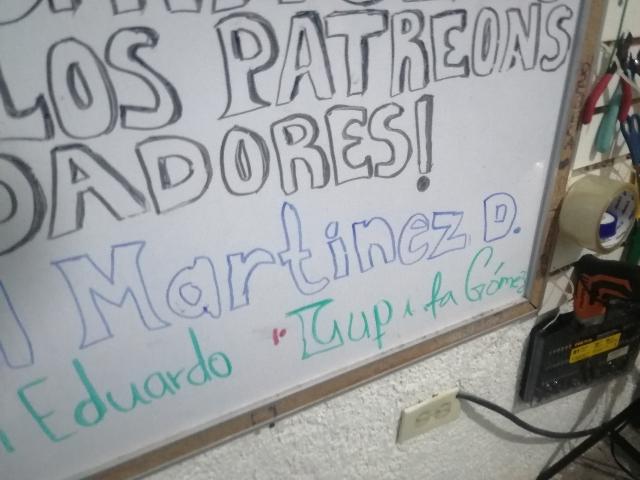 LOS PATREONS
DADORES!
Martinez D.
Eduardo Lupita Gómez